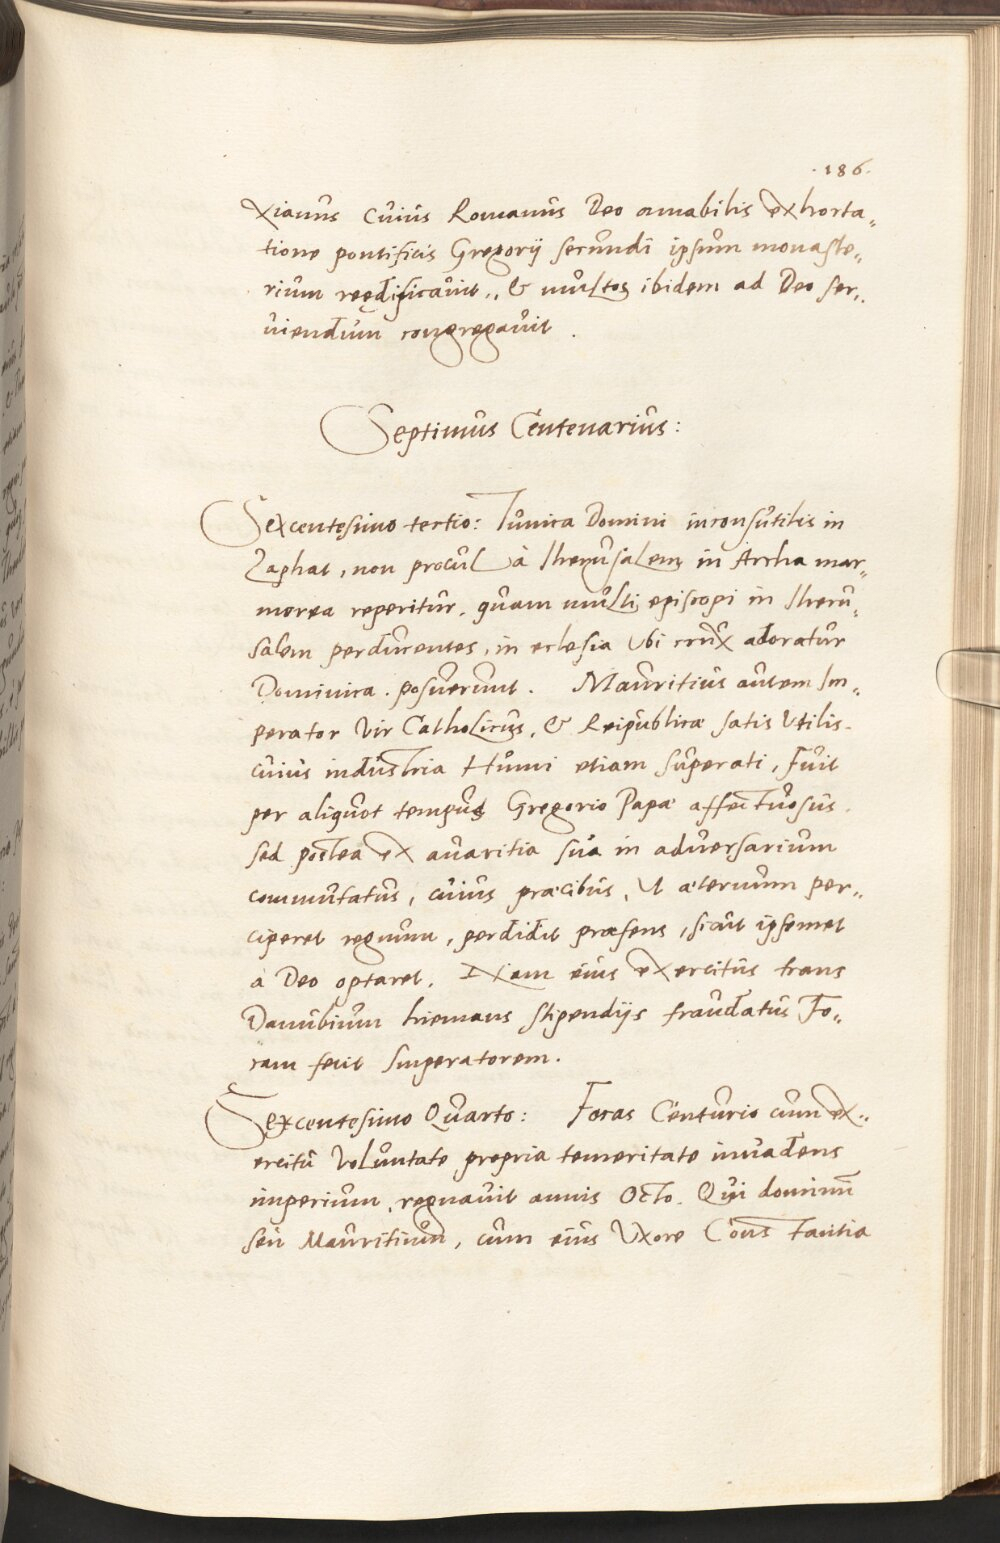 ·186·
xianus cuius Romanus Deo amabilis exhorta„
tione pontificis Gregorij secundi ipsum monaste„
rium reędificauit„ & multos ibidem ad Deo ser„
uiendum congregauit.
Septimus Centenarius:
Sexcentesimo tertio: Tunica Domini inconsutilis in
Zaphat, non procul à Iherusalem in Archa mar„
morea reperitur. quam multi episcopi in Iheru„
salem perducentes, in eclesia ubi crux adoratur
Dominica. posuerunt. Mauritius autem Im„
perator Vir Catholicus, & Reipublicæ satis Utilis.
cuius industria Hunni etiam superati, Fuit
per aliquot tempus Gregorio Papæ affectuosus.
sed postea ex auaritia sua in aduersarium
commutatus, cuius præcibus, Ut æternum per„
ciperet regnum, perdidit præsens, sicut ipsemet
à Deo optaret. Nam eius exercitus trans
Danubium hiemans stipendijs fraudatus Fo„
cam fecit Imperatorem.
Sexcentesimo Quarto: Focas Centurio cum ex„
ercitu Voluntate propria temeritate inuadens
imperium, regnauit annis Octo. Qui dominum̄
seu Mauritium, cum eius Uxore Constantia